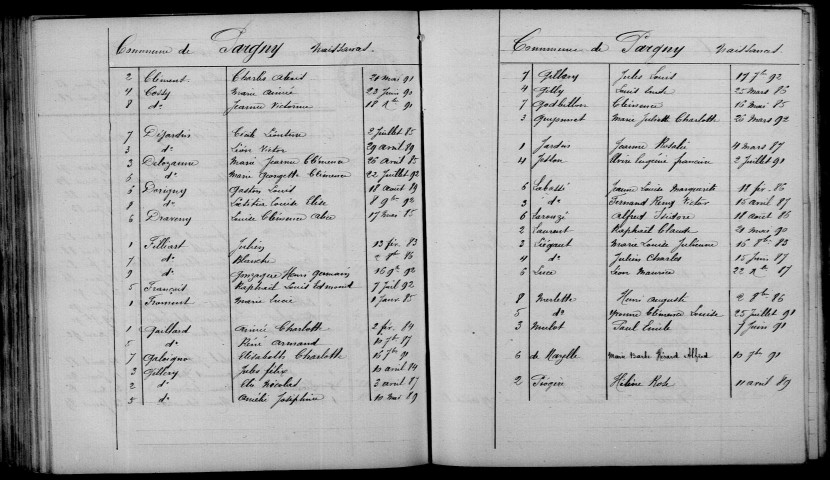 Commune de Pargny Naissances.
2 Clément Charles Abus 21 mai 91
4 Cossy Marie Aimée 23 juin 90
8 do Jeanne Victorine 18 91
7 Désardin Cécile Léontine 2 juillet 85
3 do Léon Victor 29 avril 89
3 Delozanne Marie Jeanne Clémence 26 avril 85
5 do Marie Georgette Clémence 22 juillet 92
6 Dorigny Gaston Louis 18 août 89
8 do Laetitia Louise Elise 8 9bre 86
6 Draveny Louise Clémence 17 mai 85
1 Filliart Julien 13 fév. 83
7 do Blanche 2 8bre 86
9 do Gonzague Henri Germain 16 9bre 92
5 François Raphaël Louis Edmond 7 juil 92
1 Froment Marie Lucie 1 janv. 85
1 Gaillard Aimé Charlotte 2 fév. 84
5 do René Armand 10 7bre 87
7 Galoigne Elisabeth Charlotte 16 7bre 91
3 Gillery Jules félix 10 avril 84
2 do Ch. Nicolas 3 avril 87
5 do Amélie Joséphine 10 mai 89
Commune de Pargny Naissances.
7 Gillery Jules Louis 17 7bre 92
4 Gilly Louis 25 mars 86
7 Godbillon Clémence 16 mai 85
3 Guyonnet Marie Juliette Charlotte 26 mars 92
1 Jardin Jeanne Rosalie 4 mars 87
4 Eugénie 2 juillet 91
6 Labassé Jeanne Louise Marguerite 18 fév. 86
3 do Fernand Remy Victor 15 avril 87
6 Larouzé Alfred Isidore 18 août 86
2 Laurent Raphaël Claude 21 mai 90
3 Liégaut Marie Louise Julienne 16 8bre 83
4 do Julien Charles 15 juin 87
6 Luce Léon Maurice 22 87
8 Merlette Henri Auguste 2 8bre 86
5 do Yvonne Clémence Louise 25 juillet 90
3 Mulot Paul Emile 7 juin 91
6 de Nazelle Marie Barbe Gérard Alfred 10 7bre 90
2 Hélène Rose 11 avril 89